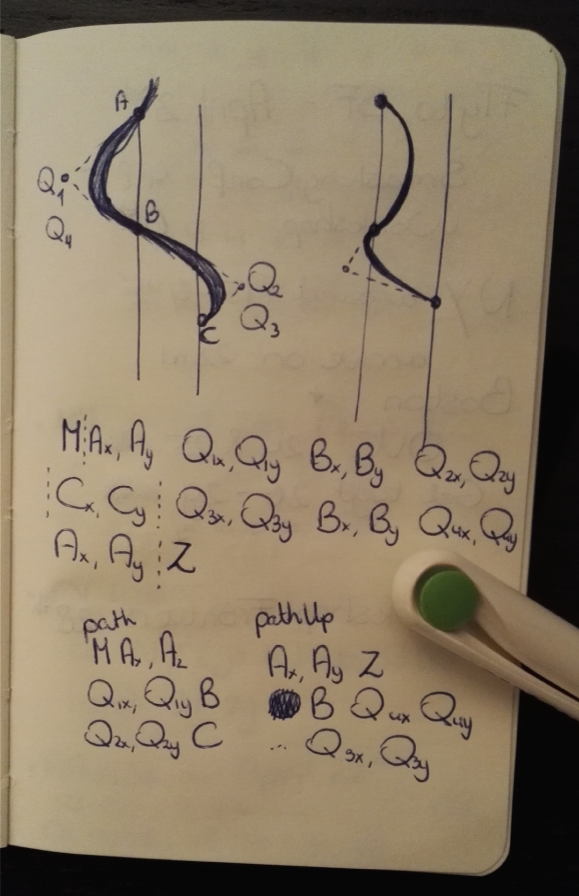 A
Q1
Q4
B
Q2
Q3
C
M Ax, Ay Q1x, Q1y Bx, By Q2x, Q2y
Cx, Cy Q3x, Q3y Bx, By Q4x, Q4y
Ax, Ay Z
path
M Ax, Az
Q1x, Q1y B
Q2x, Q2y C
pathUp
Ax, Ay Z
B Q4x Q4y
... Q3x, Q3y